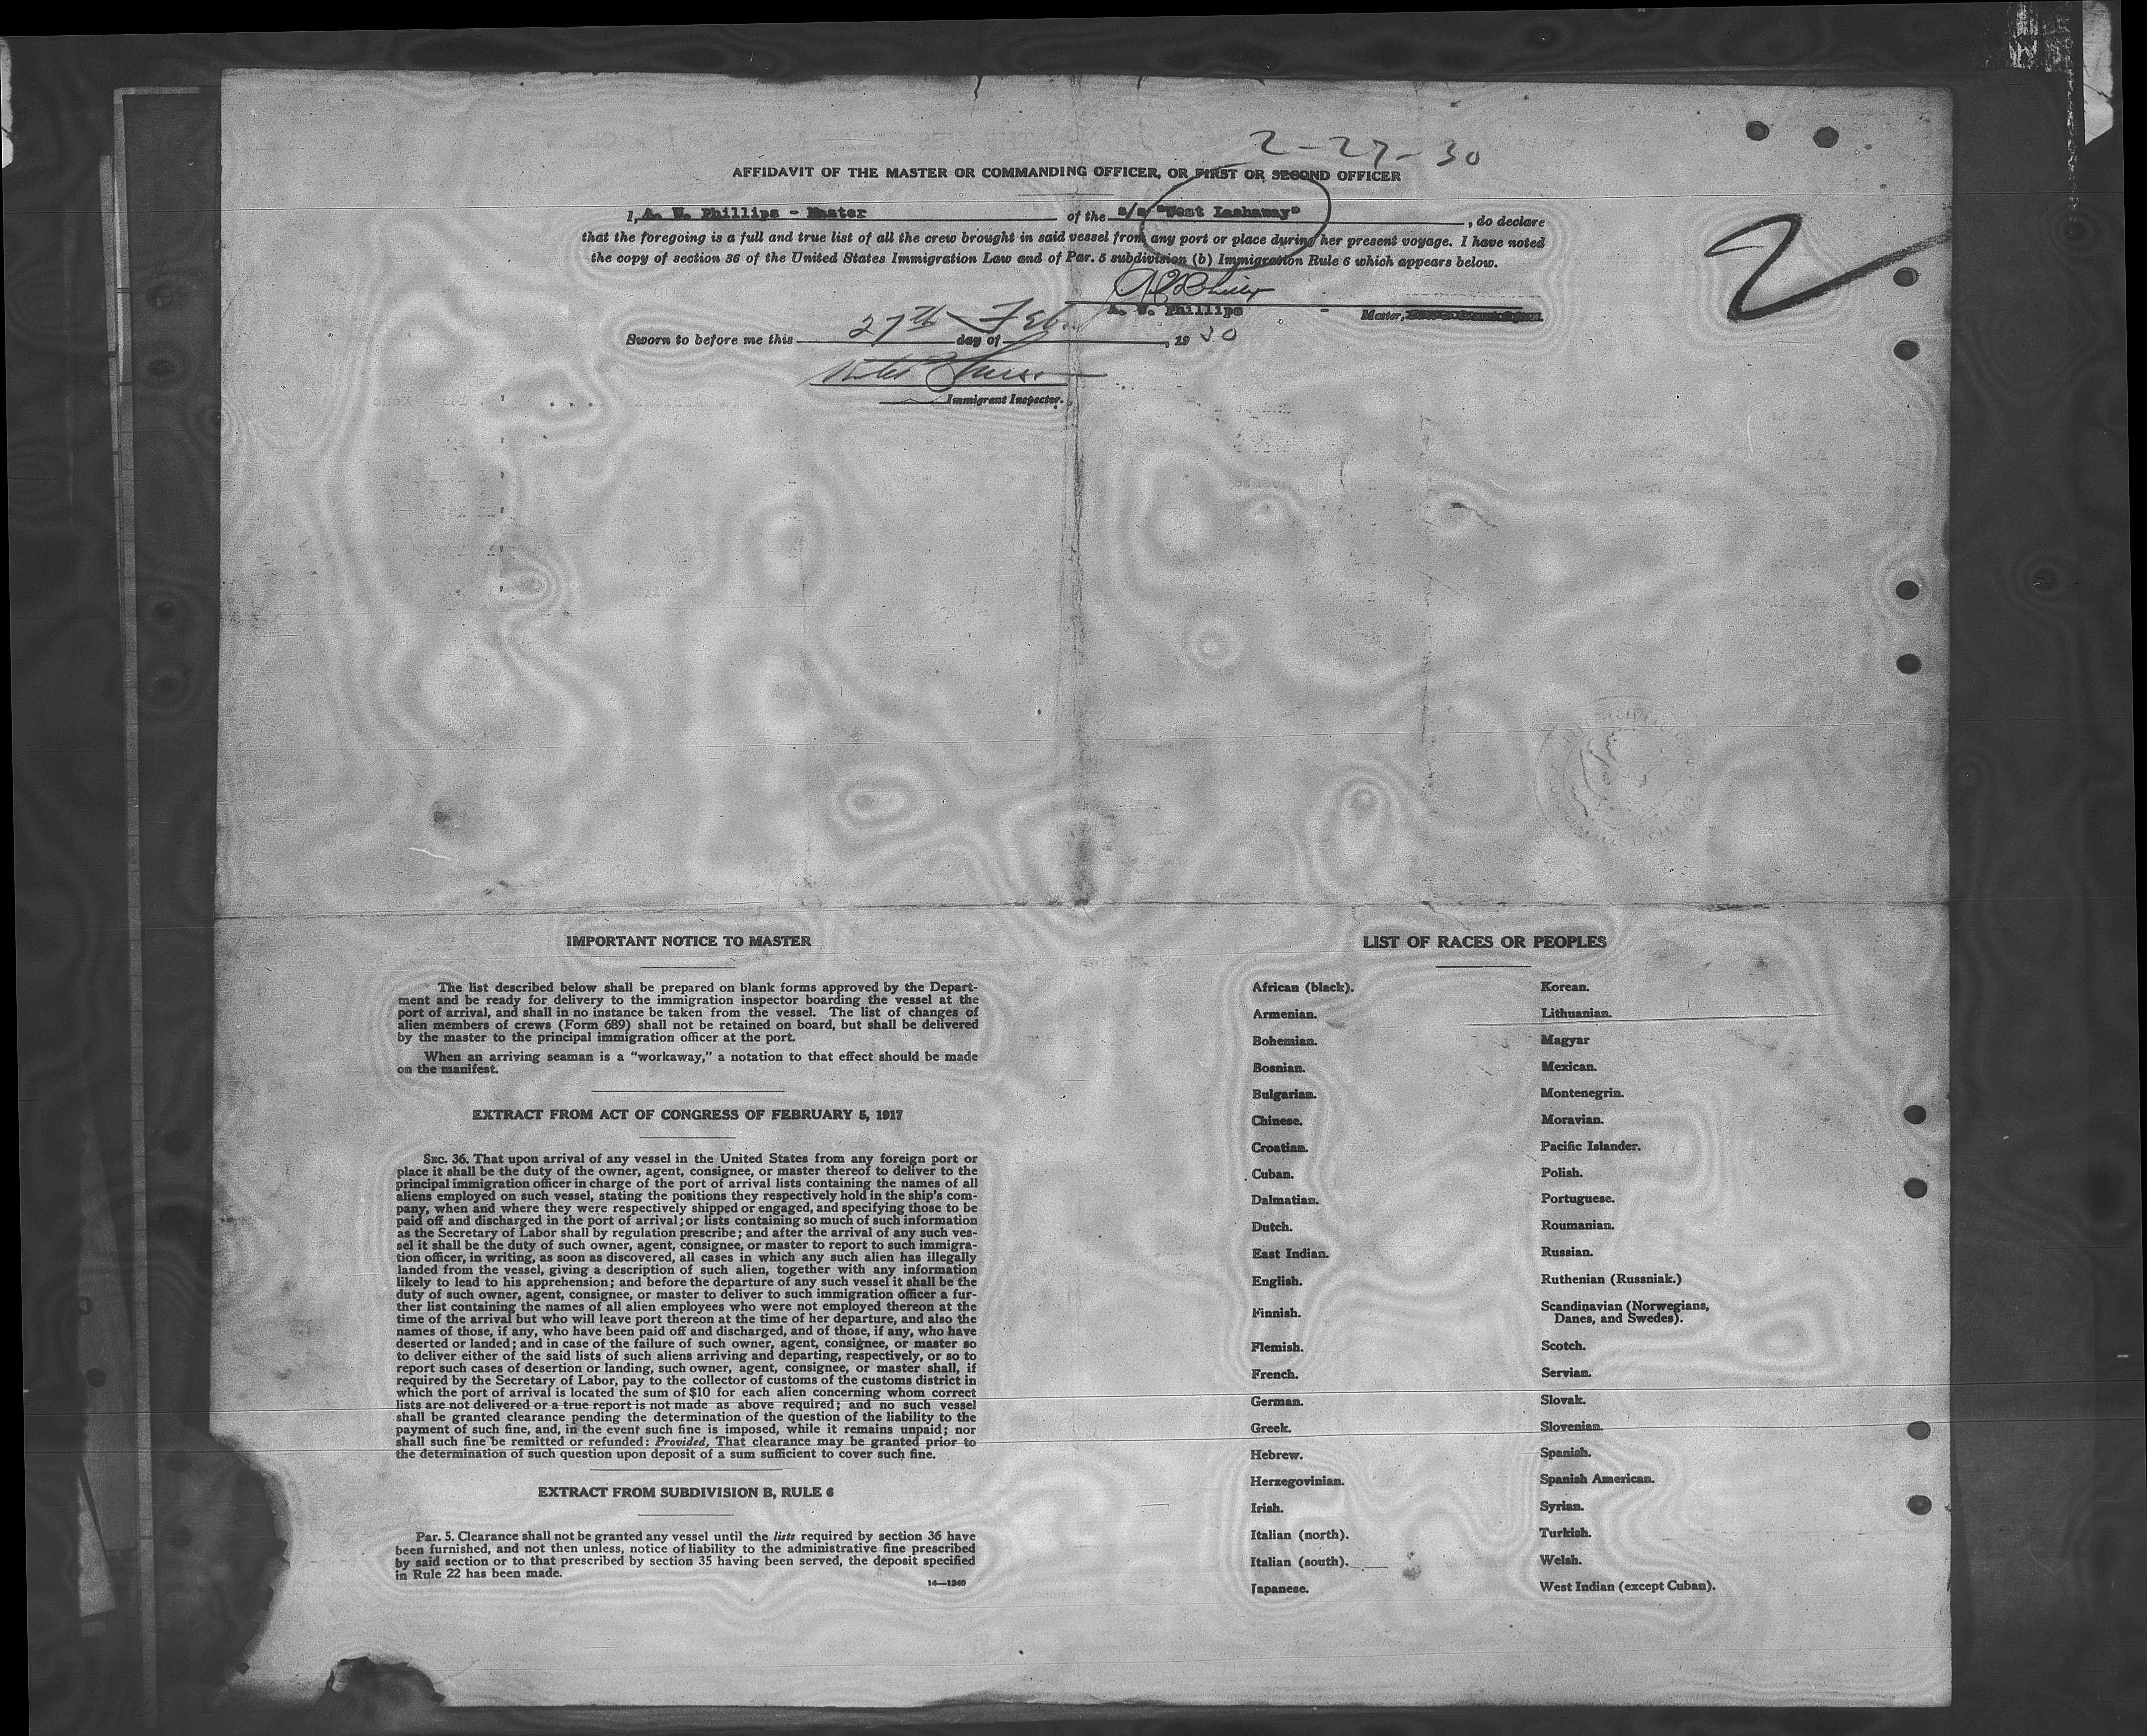 2-27-30
AFFIDAVIT OF THE MASTER OR COMMANDING OFFICER, OR FIRST OR SECOND OFFICER
I, A. W. Phillips - Master of the s/s "West Lashaway", do declare
that the foregoing is a full and true list of all the crew brought in said vessel from any port or place during her present voyage. I have noted
the copy of section 36 of the United States Immigration Law and of Par. 5 subdivision (b) Immigration Rule 6 which appears below.
2
A. W. Phillips - Master,
Sworn to before me this 27th day of Feb. , 1930
Immigrant Inspector.
IMPORTANT NOTICE TO MASTER
The list described below shall be prepared on blank forms approved by the Depart-
ment and be ready for delivery to the immigration inspector boarding the vessel at the
port of arrival, and shall in no instance be taken from the vessel. The list of changes of
alien members of crews (Form 689) shall not be retained on board, but shall be delivered
by the master to the principal immigration officer at the port.
When an arriving seaman is a "workaway," a notation to that effect should be made
on the manifest.
EXTRACT FROM ACT OF CONGRESS OF FEBRUARY 5, 1917
SEC. 36. That upon arrival of any vessel in the United States from any foreign port or
place it shall be the duty of the owner, agent, consignee, or master thereof to deliver to the
principal immigration officer in charge of the port of arrival lists containing the names of all
aliens employed on such vessel, stating the positions they respectively hold in the ship's com-
pany, when and where they were respectively shipped or engaged, and specifying those to be
paid off and discharged in the port of arrival; or lists containing so much of such information
as the Secretary of Labor shall by regulation prescribe; and after the arrival of any such ves-
sel it shall be the duty of such owner, agent, consignee, or master to report to such immigra-
tion officer, in writing, as soon as discovered, all cases in which any such alien has illegally
landed from the vessel, giving a description of such alien, together with any information
likely to lead to his apprehension; and before the departure of any such vessel it shall be the
duty of such owner, agent, consignee, or master to deliver to such immigration officer a fur-
ther list containing the names of all alien employees who were not employed thereon at the
time of the arrival but who will leave port thereon at the time of her departure, and also the
names of those, if any, who have been paid off and discharged, and of those, if any, who have
deserted or landed; and in case of the failure of such owner, agent, consignee, or master so
to deliver either of the said lists of such aliens arriving and departing, respectively, or so to
report such cases of desertion or landing, such owner, agent, consignee, or master shall, if
required by the Secretary of Labor, pay to the collector of customs of the customs district in
which the port of arrival is located the sum of $10 for each alien concerning whom correct
lists are not delivered or a true report is not made as above required; and no such vessel
shall be granted clearance pending the determination of the question of the liability to the
payment of such fine, and, in the event such fine is imposed, while it remains unpaid; nor
shall such fine be remitted or refunded: Provided, That clearance may be granted prior to
the determination of such question upon deposit of a sum sufficient to cover such fine.
EXTRACT FROM SUBDIVISION B, RULE 6
Par. 5. Clearance shall not be granted any vessel until the lists required by section 36 have
been furnished, and not then unless, notice of liability to the administrative fine prescribed
by said section or to that prescribed by section 35 having been served, the deposit specified
in Rule 22 has been made.
14—1240
LIST OF RACES OR PEOPLES
African (black).
Armenian.
Bohemian.
Bosnian.
Bulgarian.
Chinese.
Croatian.
Cuban.
Dalmatian.
Dutch.
East Indian.
English.
Finnish.
Flemish.
French.
German.
Greek.
Hebrew.
Herzegovinian.
Irish.
Italian (north).
Italian (south).
Japanese.
Korean.
Lithuanian.
Magyar
Mexican.
Montenegrin.
Moravian.
Pacific Islander.
Polish.
Portuguese.
Roumanian.
Russian.
Ruthenian (Russniak.)
Scandinavian (Norwegians,
Danes, and Swedes).
Scotch.
Servian.
Slovak.
Slovenian.
Spanish.
Spanish American.
Syrian.
Turkish.
Welsh.
West Indian (except Cuban).